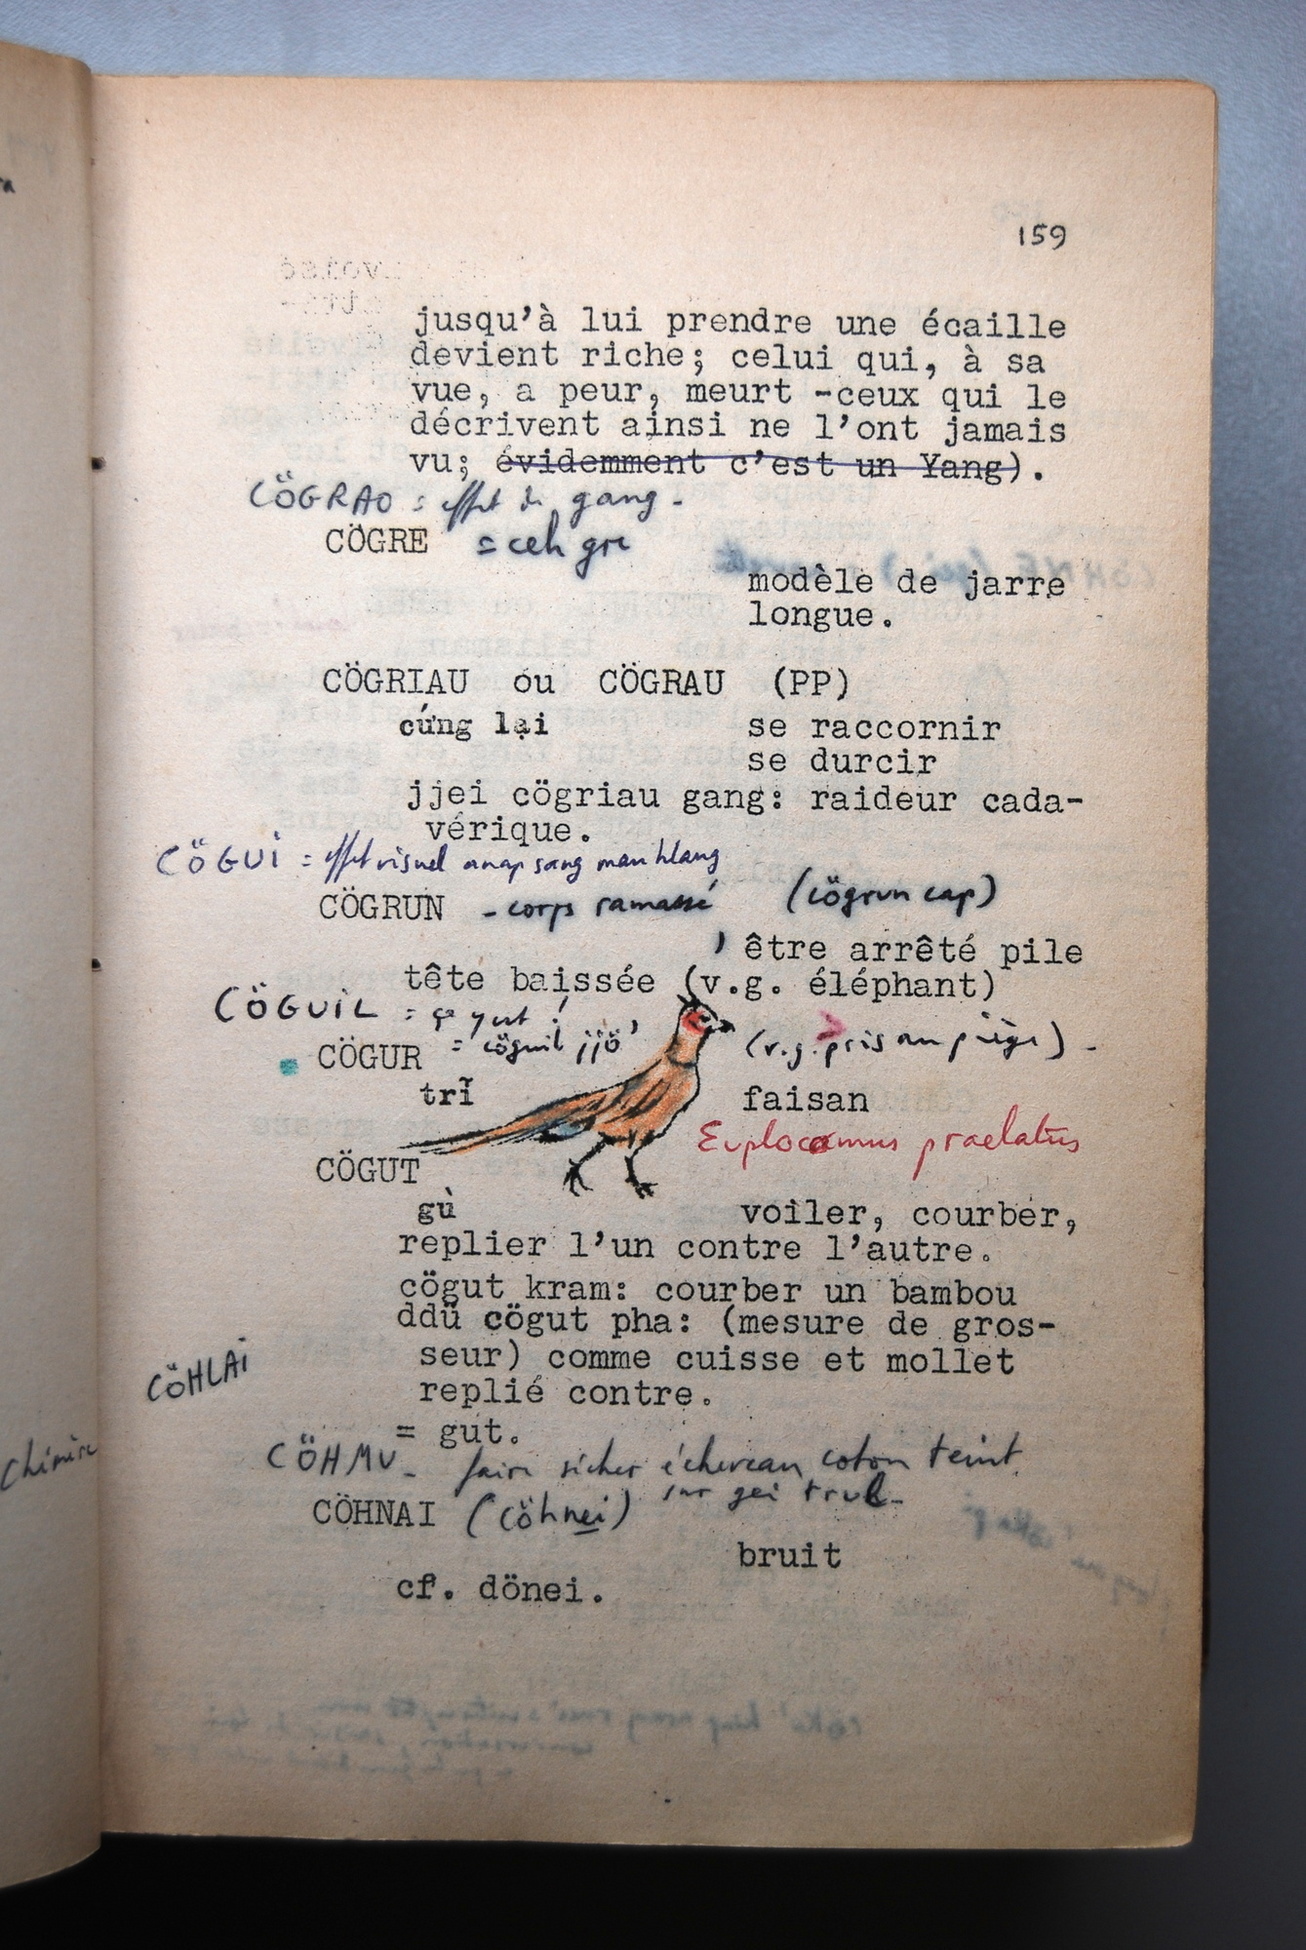 159
jusqu'à lui prendre une écaille
devient riche; celui qui, à sa
vue, a peur, meurt -ceux qui le
décrivent ainsi ne l'ont jamais
vu; évidemment c'est un Yang).
CÖGRAO = effet de gang -
CÖGRE = ceh gre
modèle de jarre
longue.
CÖGRIAU ou CÖGRAU (PP)
cứng lại se raccornir
se durcir
jjei cögriau gang: raideur cada-
vérique.
CÖGUI = effet visuel anap sang mau hlang
CÖGRUN - corps ramassé (cögrun cap)
, être arrêté pile
tête baissée (v.g. éléphant)
CÖGUIL = ça y est !
(v.g. pris au piège) -
CÖGUR = cöguil jjö'
trĩ faisan
Euplocamus praelatus
CÖGUT
gù voiler, courber,
replier l'un contre l'autre.
cögut kram: courber un bambou
ddü cögut pha: (mesure de gros-
seur) comme cuisse et mollet
CÖHLAI
replié contre.
= gut.
Chimère
CÖHMU - faire sécher écheveau coton teint
sur gei truh -
CÖHNAI (cöhnei)
bruit
cf. dönei.